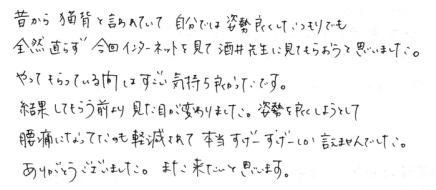 昔から猫背と言われていて 自分では姿勢良くしたつもりでも
全然直らず 今回インターネットを見て酒井先生に見てもらおうと思いました。
やってもらっている間はすごい気持ち良かったです。
結果してもらう前より見た目が変わりました。姿勢を良くしようとして
腰痛になってたのも軽減されて本当すげーすげーしか言えませんでした。
ありがとうございました。また来たいと思います。